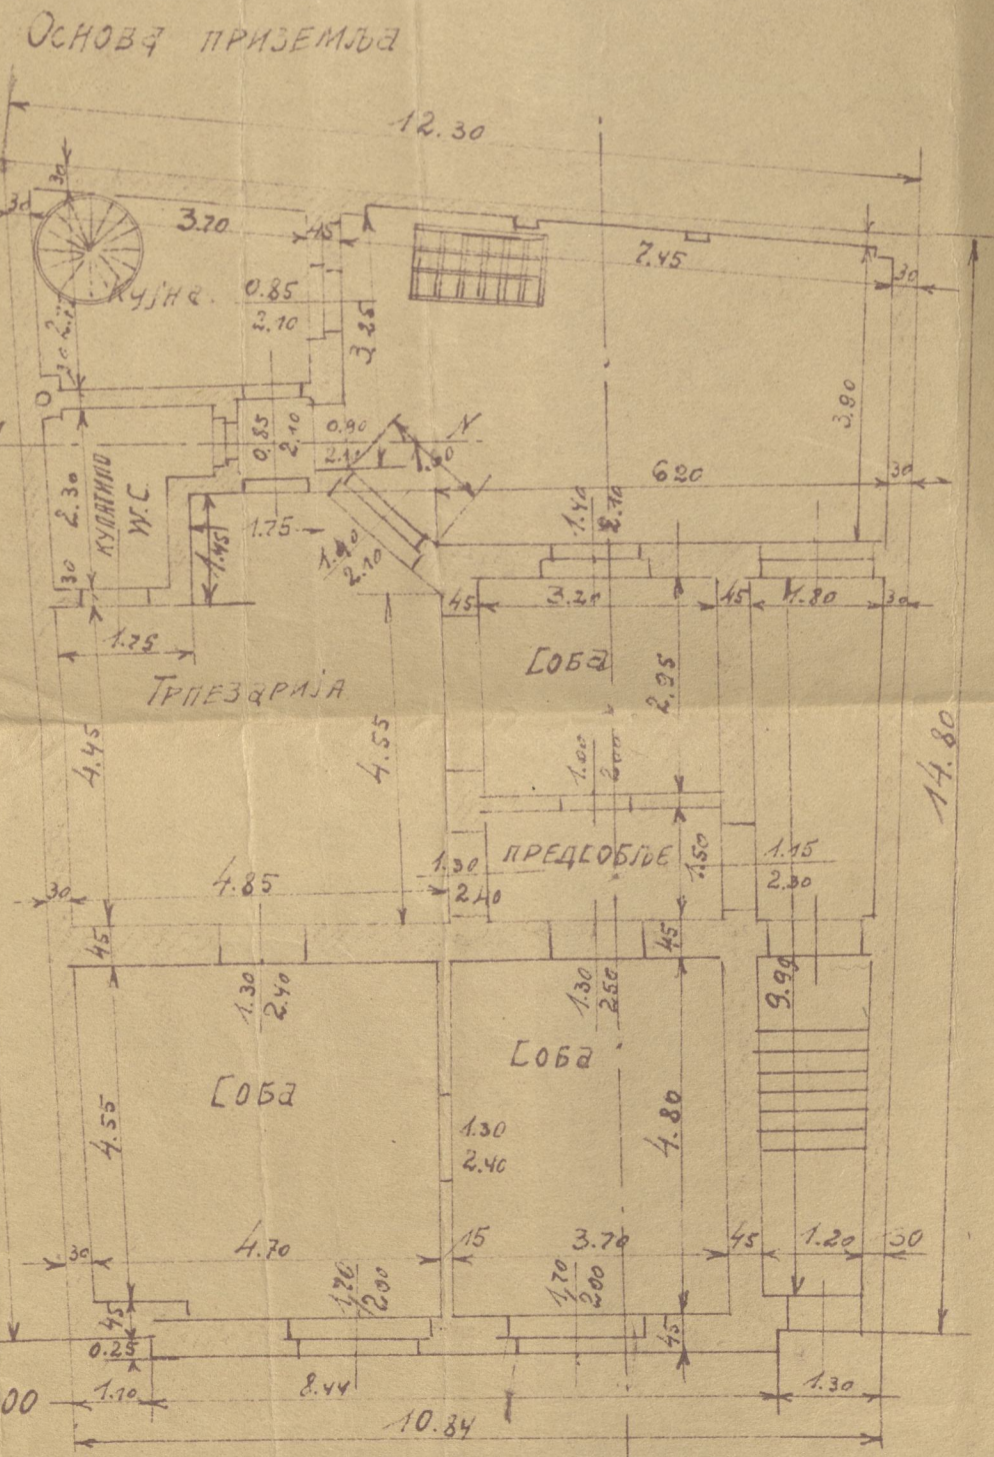 Основа приземља
12.30
30
30
3.70
45
7.45
30
Кујна.
0.85
2.10
3.25
30
3.90
0.85
2.10
0.90
N
620
30
2.30
КУПАТИЛО
W.C.
1.45
1.75
2.10
1.40
2.10
30
45
3.20
45
1.80
30
1.75
Соба
Трпезарија
2.95
4.45
4.55
1.00
2.00
14.80
ПРЕДСОБЉЕ
1.50
1.30
2.40
1.15
2.30
30
4.85
45
45
1.30
2.40
1.30
250
9.99
Соба
Соба
4.55
4.80
1.30
2.40
30
4.70
15
3.70
45
1.20
30
1,70
200
1,70
200
45
0.25
45
00
1.10
8.44
1.30
10.84